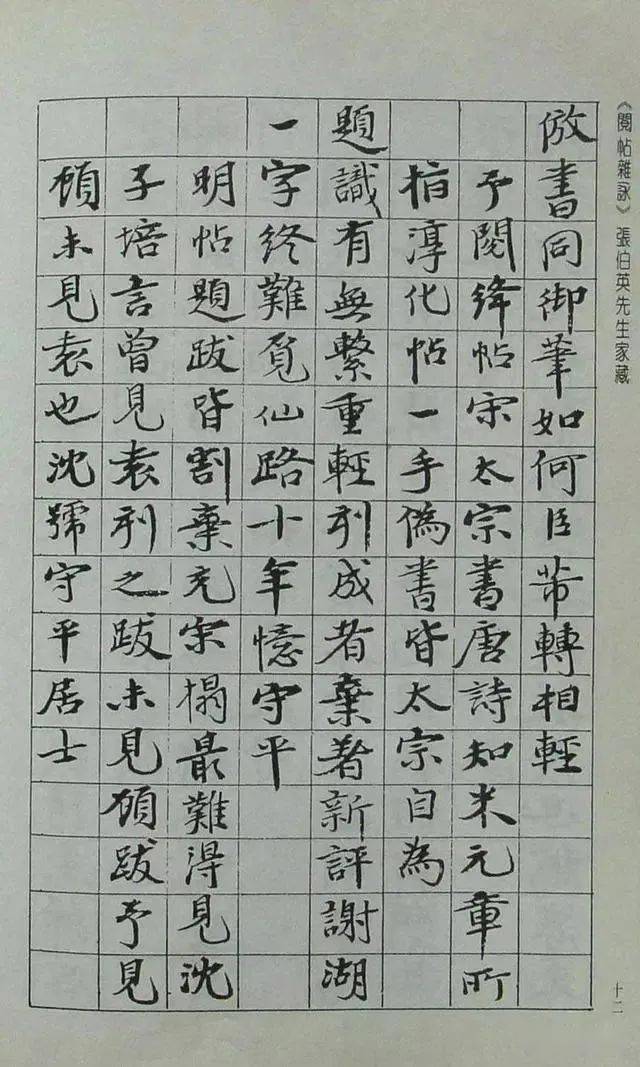 《閲帖雜詠》張伯英先生家藏
倣書同御筆如何臣芾轉相輕
予閱絳帖宋太宗書唐詩知米元章所
指淳化帖一手偽書皆太宗自為
題識有無繫重輕刋成者棄著新評謝湖
一字終難覓仙路十年憶守平
明帖題跋皆割棄充宋搨最難得見沈
子培言曾見袁刋之跋未見顧跋予見
顧未見袁也沈號守平居士
十二